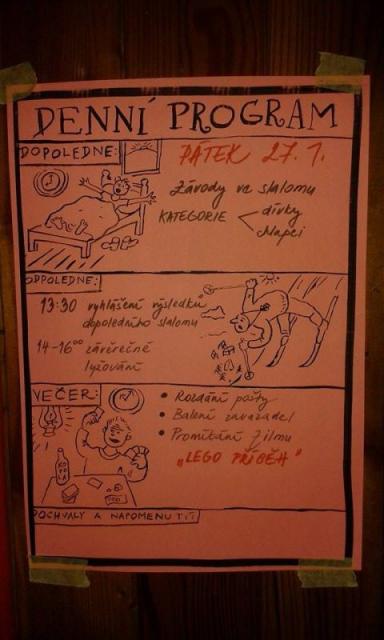 DENNÍ PROGRAM
DOPOLEDNE:
PÁTEK 27. 1.
Závody ve slalomu
KATEGORIE
dívky
chlapci
ODPOLEDNE:
13:30 vyhlášení výsledků
dopoledního slalomu
14-16⁰⁰ závěrečné
lyžování
VEČER:
• Rozdání pošty
• Balení zavazadel
• Promítání filmu
"LEGO PŘÍBĚH"
POCHVALY A NAPOMENUTÍ